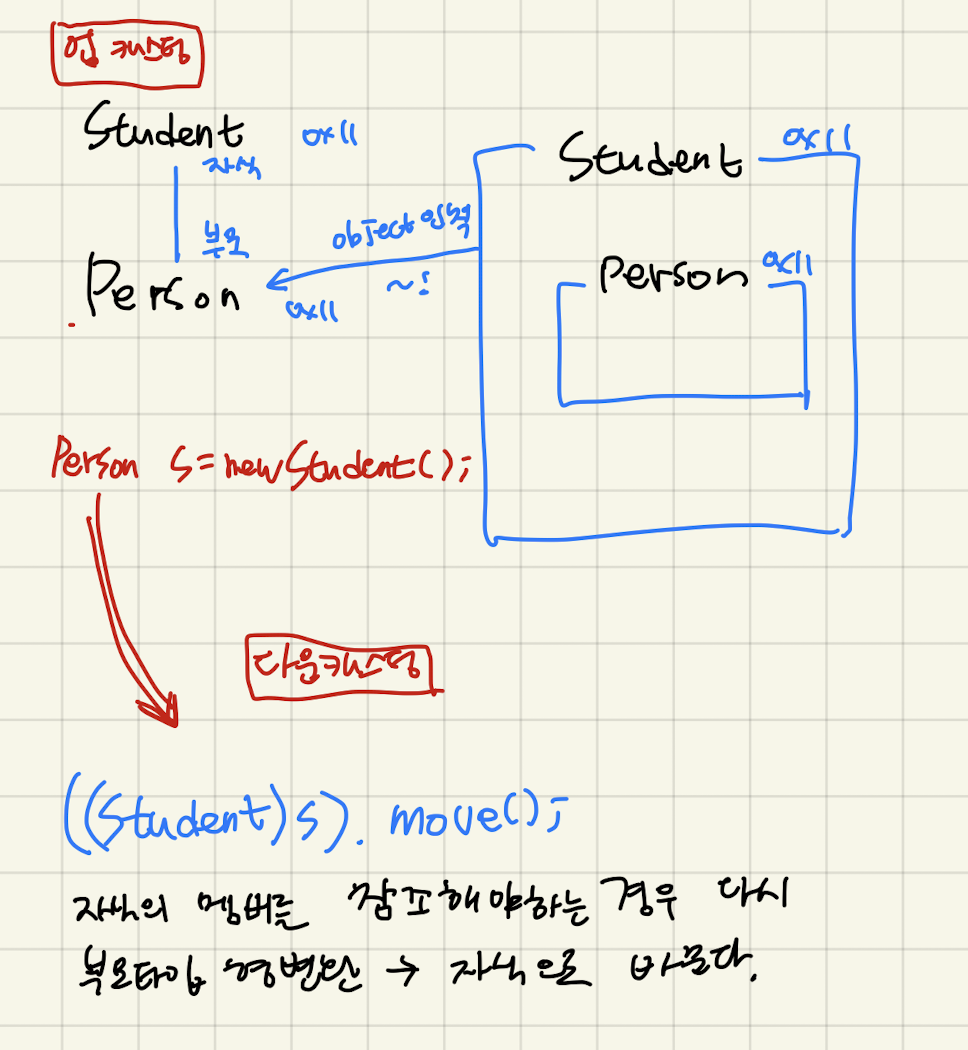 업 캐스팅
Student 0x11
자식
부모
Person 0x11
object 영역
~!
Student 0x11
Person 0x11
Person s=new Student();
다운캐스팅
((Student)s).move();
자식의 멤버를 참조해야하는 경우 다시
부모타입 형변환 → 자식으로 바꾼다.